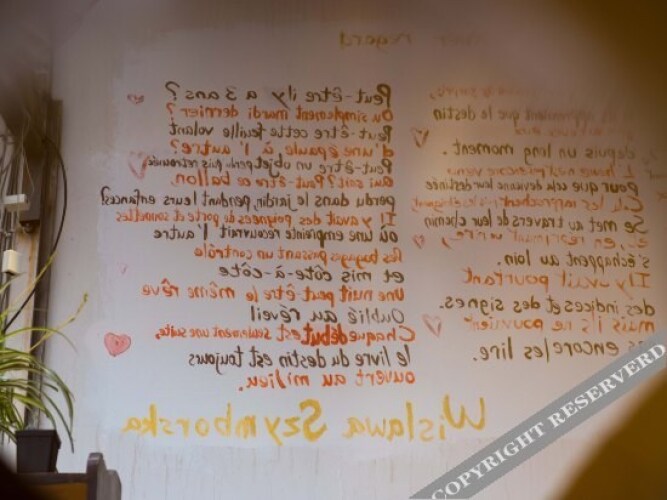 regard
que le destin
depuis un long moment.
pour que cela devienne leur destinée
Se met au travers de leur chemin
s'échappent au loin.
Il y avait pourtant
des indices et des signes.
mais ils ne
encore les lire.
Peut-être il y a 3 ans?
Ou simplement mardi dernier?
Peut-être cette feuille volant
d'une épaule, à l'autre?
Peut-être un objet perdu puis retrouvée
qui sait? Peut-être ce ballon.
perdu dans le jardin, pendant leurs enfances?
Il y avait des poignées de porte et sonnettes
où une empreinte recouvrait l'autre
Des bagages passant un contrôle
et mis côte-à-côte
Une nuit peut être le même rêve
Oublié au réveil
Chaque début est seulement une suite,
le livre du destin est toujours
ouvert au milieu.
Wislawa Szymborska
COPYRIGHT RESERVERD